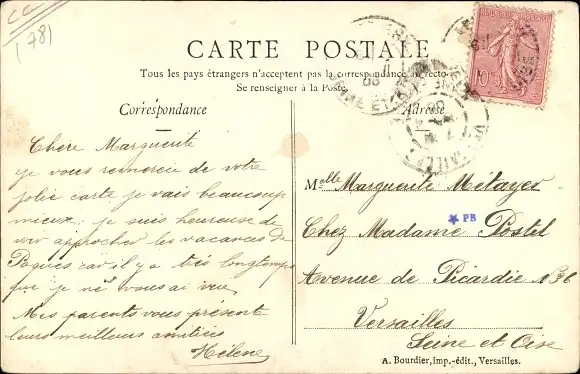 CC
(78)
CARTE POSTALE
Tous les pays étrangers n'acceptent pas la correspondance au recto.
Se renseigner à la Poste.
Correspondance
Adresse
RÉPUBLIQUE FRANÇAISE
10
Chère Marguerite
je vous remercie de votre
jolie carte je vais beaucoup
mieux; je suis heureuse de
voir approcher les vacances de
Pâques car il y a très longtemps
que je ne vous ai vue
Mes parents vous présente
leurs meilleurs amitiées
Hélène
Melle Marguerite Métayer
Chez Madame Postel
PB
Avenue de Picardie N 36
Versailles
Seine et Oise
A. Bourdier, imp.-édit., Versailles.